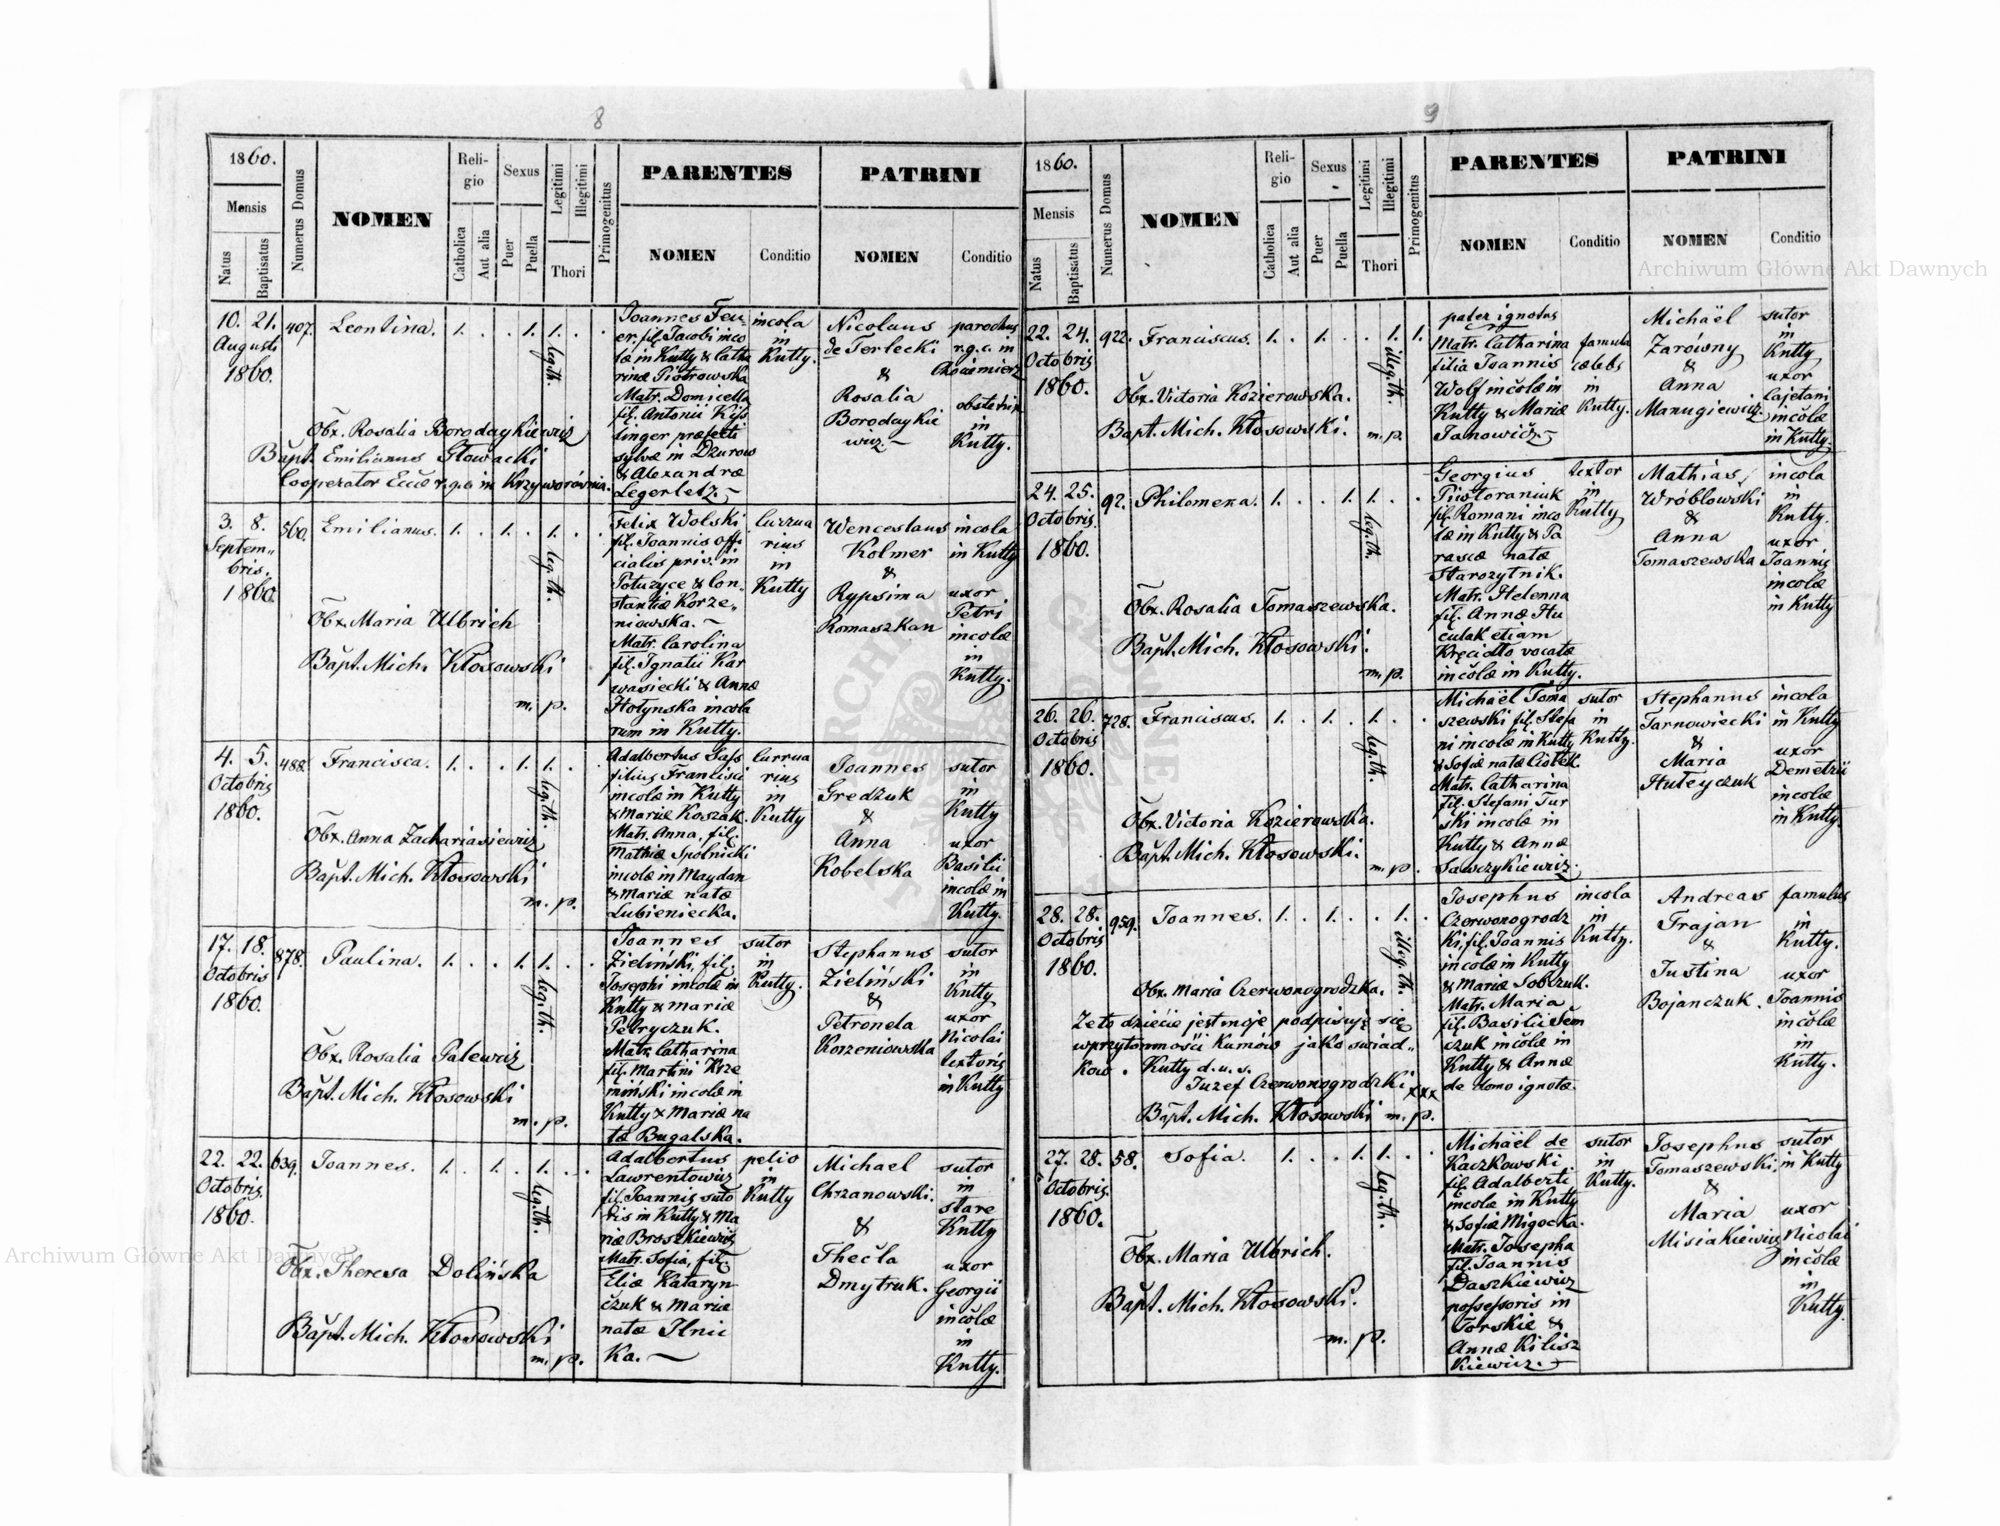 8
1860.
Mensis
Natus
Baptisatus
Numerus Domus
NOMEN
Religio
Catholica
Aut alia
Sexus
Puer
Puella
Legitimi
Illegitimi
Thori
Primogenitus
PARENTES
NOMEN
Conditio
PATRINI
NOMEN
Conditio
10. 21. 407. Leontina. 1. . . 1. 1. .
Augusti
1860.
leg. th.
Obx. Rosalia Borodaykiewicz
Bapt. Emilianus Głowacki
Cooperator Eccæ r.g.c. in Krzyworównia.
Joannes Feu-
er, fil. Jacobi inco
læ in Kutty & Catha
rinæ Piotrowska
Matr. Domicella
fil. Antonii Kiss
linger præfecti
sylvæ in Dżurow
& Alexandræ
Legerletz.
incola
in
Kutty.
Nicolaus
de Terlecki
&
Rosalia
Borodaykie
wicz.
parochus
r.g.c. in
Chocimierz
obstetrix
in
Kutty.
3. 8. 560. Emilianus. 1. . 1. . 1. . .
Septem-
bris.
1860.
leg. th.
Obx. Maria Ulbrich
Bapt. Mich. Kłosowski
m. p.
Felix Wolski
fil. Joannis offi
cialis priv. in
Potuzyce & Con-
stantiæ Korze-
niowska.
Matr. Carolina
fil. Ignatii Kar
wasiecki & Annæ
Hołynska incola
rum in Kutty.
Currua
rius
in
Kutty
Wenceslaus
Kolmer
&
Rypsima
Romaszkan
incola
in Kutty
uxor
Petri
incolæ
in
Kutty.
4. 5. 488. Francisca. 1. . . 1. 1. .
Octobris
1860.
leg. th.
Obx. Anna Zachariasiewicz
Bapt. Mich. Kłosowski
m. p.
Adalbertus Sass
filius Francisci
incolæ in Kutty
& Mariæ Koszak.
Matr. Anna, fil.
Mathiæ Spolnicki
incolæ in Maydan
& Mariæ natæ
Lubieniecka.
Currua
rius
in
Kutty
Joannes
Gredżuk
&
Anna
Kobelska
sutor
in
Kutty
uxor
Basilii
incolæ in
Kutty.
17. 18. 878. Paulina. 1. . . 1. 1. . .
Octobris
1860.
leg. th.
Obx. Rosalia Palewicz
Bapt. Mich. Kłosowski
m. p.
Joannes
Zieliński, fil.
Josephi incolæ in
Kutty & Mariæ
Petryczuk.
Matr. Catharina
fil. Martini Krze
miński incolæ in
Kutty & Mariæ na
tæ Bugalska.
sutor
in
Kutty.
Stephanus
Zieliński
&
Petronela
Korzeniowska
sutor
in
Kutty
uxor
Nicolai
textoris
in Kutty
22. 22. 639. Joannes. 1. . 1. . 1. . .
Octobris
1860.
leg. th.
Obx. Theresa Dolińska
Bapt. Mich. Kłosowski
m. p.
Adalbertus
Lawrentowicz
fil. Joannis suto
ris in Kutty & Ma
riæ Broszkiewicz
Matr. Sofia, fil.
Eliæ Kataryn
czuk & Mariæ
natæ Ilnic
ka.
pelio
in
Kutty
Michael
Chrzanowski.
&
Thecla
Dmytruk.
sutor
in
stare
Kutty
uxor
Georgii
incolæ
in
Kutty.
9
1860.
Mensis
Natus
Baptisatus
Numerus Domus
NOMEN
Religio
Catholica
Aut alia
Sexus
Puer
Puella
Legitimi
Illegitimi
Thori
Primogenitus
PARENTES
NOMEN
Conditio
PATRINI
NOMEN
Conditio
22. 24. 922. Franciscus. 1. . 1. . . 1. 1.
Octobris
1860.
illeg. th.
Obx. Victoria Kozierowska.
Bapt. Mich. Kłosowski. m. p.
pater ignotus
Matr. Catharina
filia Joannis
Wolf incolæ in
Kutty & Mariæ
Janowicz.
famula
cælebs
in
Kutty.
Michaël
Zarówny
&
Anna
Manugiewicz
sutor
in
Kutty
uxor
Cajetani
incolæ
in Kutty.
24. 25. 92. Philomena. 1. . . 1. 1. . .
Octobris.
1860.
leg. th.
Obx. Rosalia Tomaszewska.
Bapt. Mich. Kłosowski.
m. p.
Georgius
Piwtoraniuk
fil. Romani inco
læ in Kutty & Pa
rasciæ natæ
Starozytnik.
Matr. Helenna
fil. Annæ Hu
culak etiam
Kręciatto vocatæ
incolæ in Kutty.
textor
in
Kutty
Mathias
Wróblowski
&
Anna
Tomaszewska
incola
in
Kutty.
uxor
Joannis
incolæ
in Kutty
26. 26. 728. Franciscus. 1. . 1. . 1. . .
Octobris
1860.
leg. th.
Obx. Victoria Kozierowska.
Bapt. Mich. Kłosowski.
m. p.
Michaël Toma
szewski fil. Stefa
ni incolæ in Kutty
& Sofiæ natæ Ciołek.
Matr. Catharina
fil. Stefani Tur
ski incolæ in
Kutty & Annæ
Sawczykiewicz.
sutor
in
Kutty.
Stephanus
Tarnowiecki
&
Maria
Huteyczuk
incola
in Kutty
uxor
Demetrii
incolæ
in Kutty.
28. 28. 959. Joannes. 1. . 1. . . 1. .
Octobris
1860.
illeg. th.
Obx. Maria Czerwonogrodzka.
Ze to dziécie jest moje podpisuję się
wprzytomności Kumów jako swiad-
kow. Kutty d. u. s.
Juzef Czerwonogrodzki xxx
Bapt. Mich. Kłosowski m. p.
Josephus
Czerwonogrodz
ki, fil. Joannis
incolæ in Kutty
& Mariæ Sobczuk.
Matr. Maria
fil. Basilii Sem
czuk incolæ in
Kutty & Annæ
de domo ignotæ.
incola
in
Kutty.
Andreas
Trajan
&
Justina
Bojanczuk.
famulus
in
Kutty.
uxor
Joannis
incolæ
in
Kutty.
27. 28. 58. Sofia. 1. . . 1. 1. . .
Octobris.
1860.
leg. th.
Obx. Maria Ulbrich.
Bapt. Mich. Kłosowski.
m. p.
Michaël de
Kaczkowski
fil. Adalberti
incolæ in Kutty
& Sofiæ Migocka.
Matr. Josepha
fil. Joannis
Daszkiewicz
possessoris in
Torskie &
Annæ Kilisz
kiewicz.
sutor
in
Kutty.
Josephus
Tomaszewski,
&
Maria
Misiakiewicz
sutor
in Kutty
uxor
Nicolai
incolæ
in
Kutty.
Archiwum Główne Akt Dawnych
Archiwum Główne Akt Dawnych